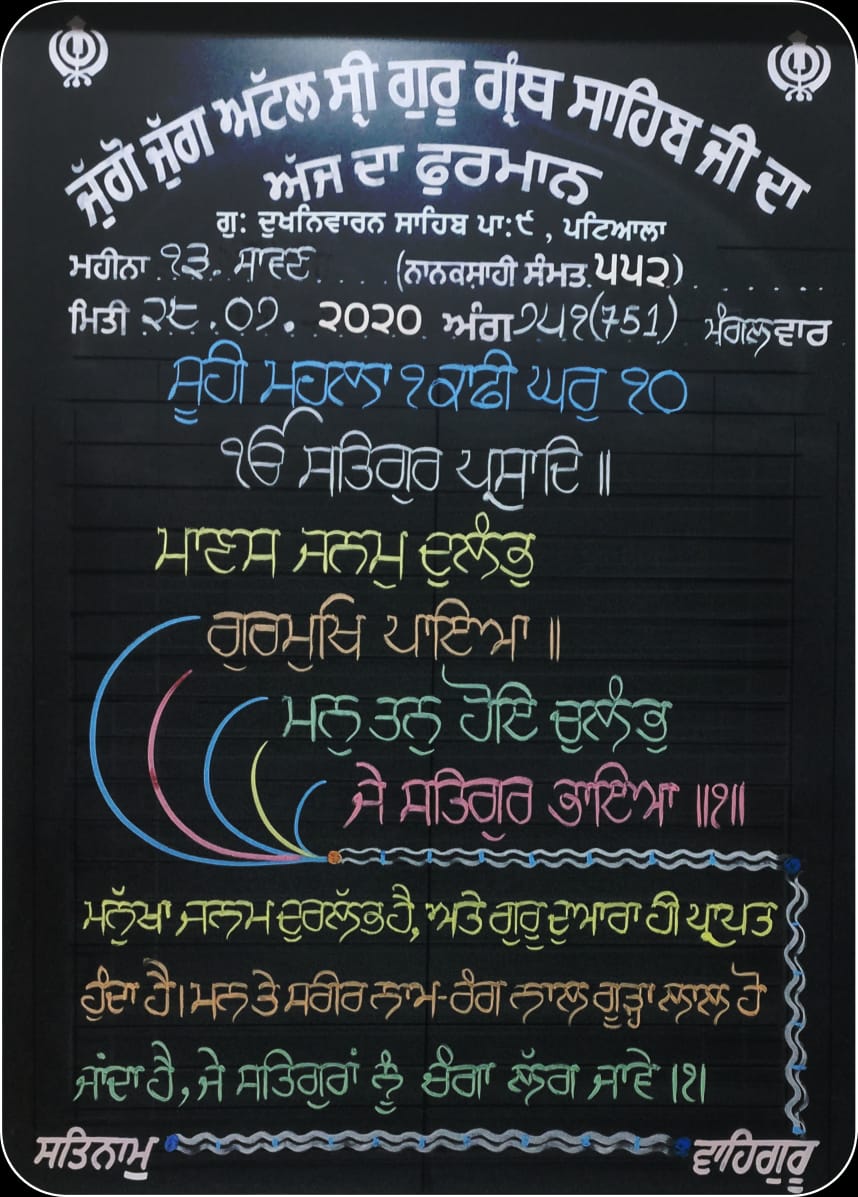 ਜੁੱਗੋ ਜੁੱਗ ਅਟੱਲ ਸ੍ਰੀ ਗੁਰੂ ਗ੍ਰੰਥ ਸਾਹਿਬ ਜੀ ਦਾ
ਅੱਜ ਦਾ ਫੁਰਮਾਨ
ਗੁ: ਦੁਖਨਿਵਾਰਨ ਸਾਹਿਬ ਪਾ:੯, ਪਟਿਆਲਾ
ਮਹੀਨਾ ੧੩. ਸਾਵਣ (ਨਾਨਕਸ਼ਾਹੀ ਸੰਮਤ ੫੫੨)
ਮਿਤੀ ੨੮.੦੭. ੨੦੨੦ ਅੰਗ ੭੫੧(751) ਮੰਗਲਵਾਰ
ਸੂਹੀ ਮਹਲਾ ੧ ਕਾਫੀ ਘਰੁ ੧੦
ੴ ਸਤਿਗੁਰ ਪ੍ਰਸਾਦਿ ॥
ਮਾਣਸ ਜਨਮੁ ਦੁਲੰਭੁ
ਗੁਰਮੁਖਿ ਪਾਇਆ ॥
ਮਨੁ ਤਨੁ ਹੋਇ ਚੁਲੰਭੁ
ਜੇ ਸਤਿਗੁਰ ਭਾਇਆ ॥੧॥
ਮਨੁੱਖਾ ਜਨਮ ਦੁਰਲੱਭ ਹੈ, ਅਤੇ ਗੁਰੂ ਦੁਆਰਾ ਹੀ ਪ੍ਰਾਪਤ
ਹੁੰਦਾ ਹੈ। ਮਨ ਤੇ ਸਰੀਰ ਨਾਮ-ਰੰਗ ਨਾਲ ਗੂੜ੍ਹਾ ਲਾਲ ਹੋ
ਜਾਂਦਾ ਹੈ, ਜੇ ਸਤਿਗੁਰਾਂ ਨੂੰ ਚੰਗਾ ਲੱਗ ਜਾਵੇ ।੧।
ਸਤਿਨਾਮੁ ਵਾਹਿਗੁਰੂ